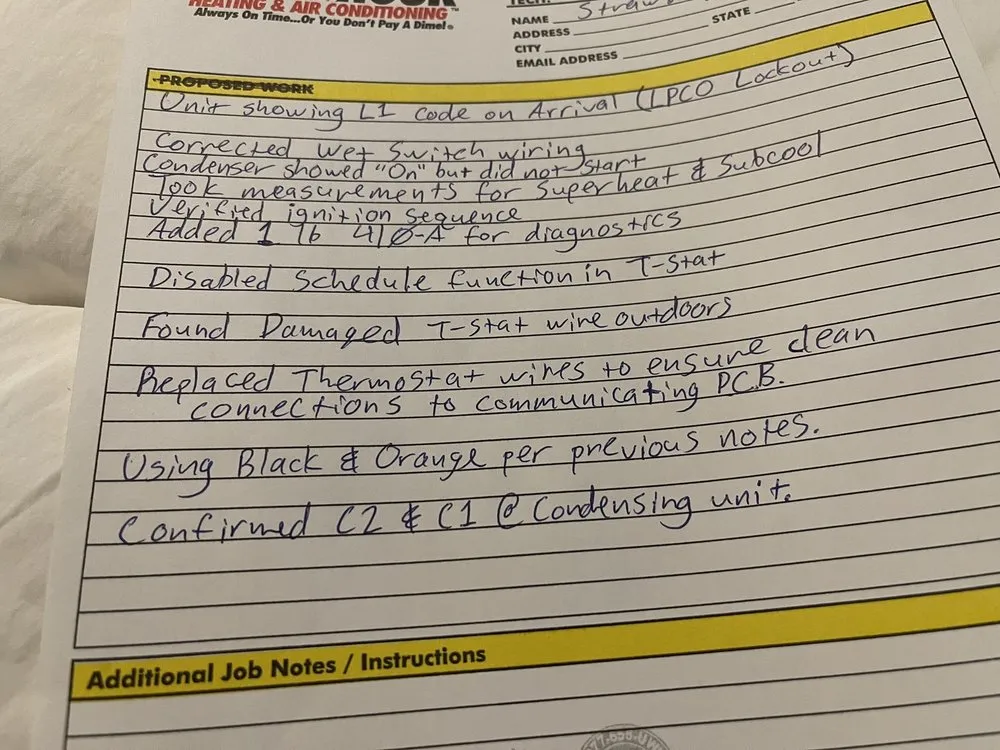 HEATING & AIR CONDITIONING™
Always On Time...Or You Don't Pay A Dime!®
NAME
STATE
ADDRESS
CITY
EMAIL ADDRESS
PROPOSED WORK
Unit showing L1 code on Arrival (LPCO Lockout)
Corrected Wet Switch wiring
Condenser showed "On" but did not start
Took measurements for Superheat & Subcool
Verified ignition sequence
Added 1 lb 410-A for diagnostics
Disabled Schedule function in T-Stat
Found Damaged T-Stat wire outdoors
Replaced Thermostat wires to ensure clean
connections to communicating PCB.
Using Black & Orange per previous notes.
Confirmed C2 & C1 @ Condensing unit.
Additional Job Notes / Instructions